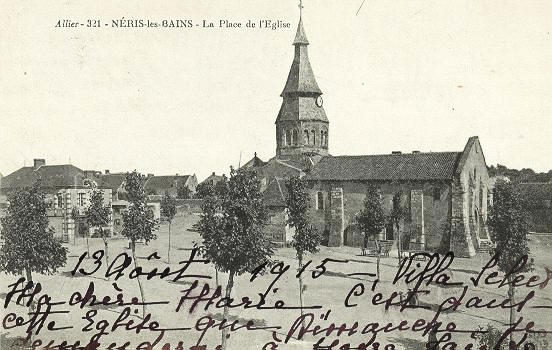 Allier - 321 - NÉRIS-les-BAINS - La Place de l'Eglise
13 Août 1915 - Villa
Ma chère Marie c'est dans
cette Eglise que Dimanche je
à